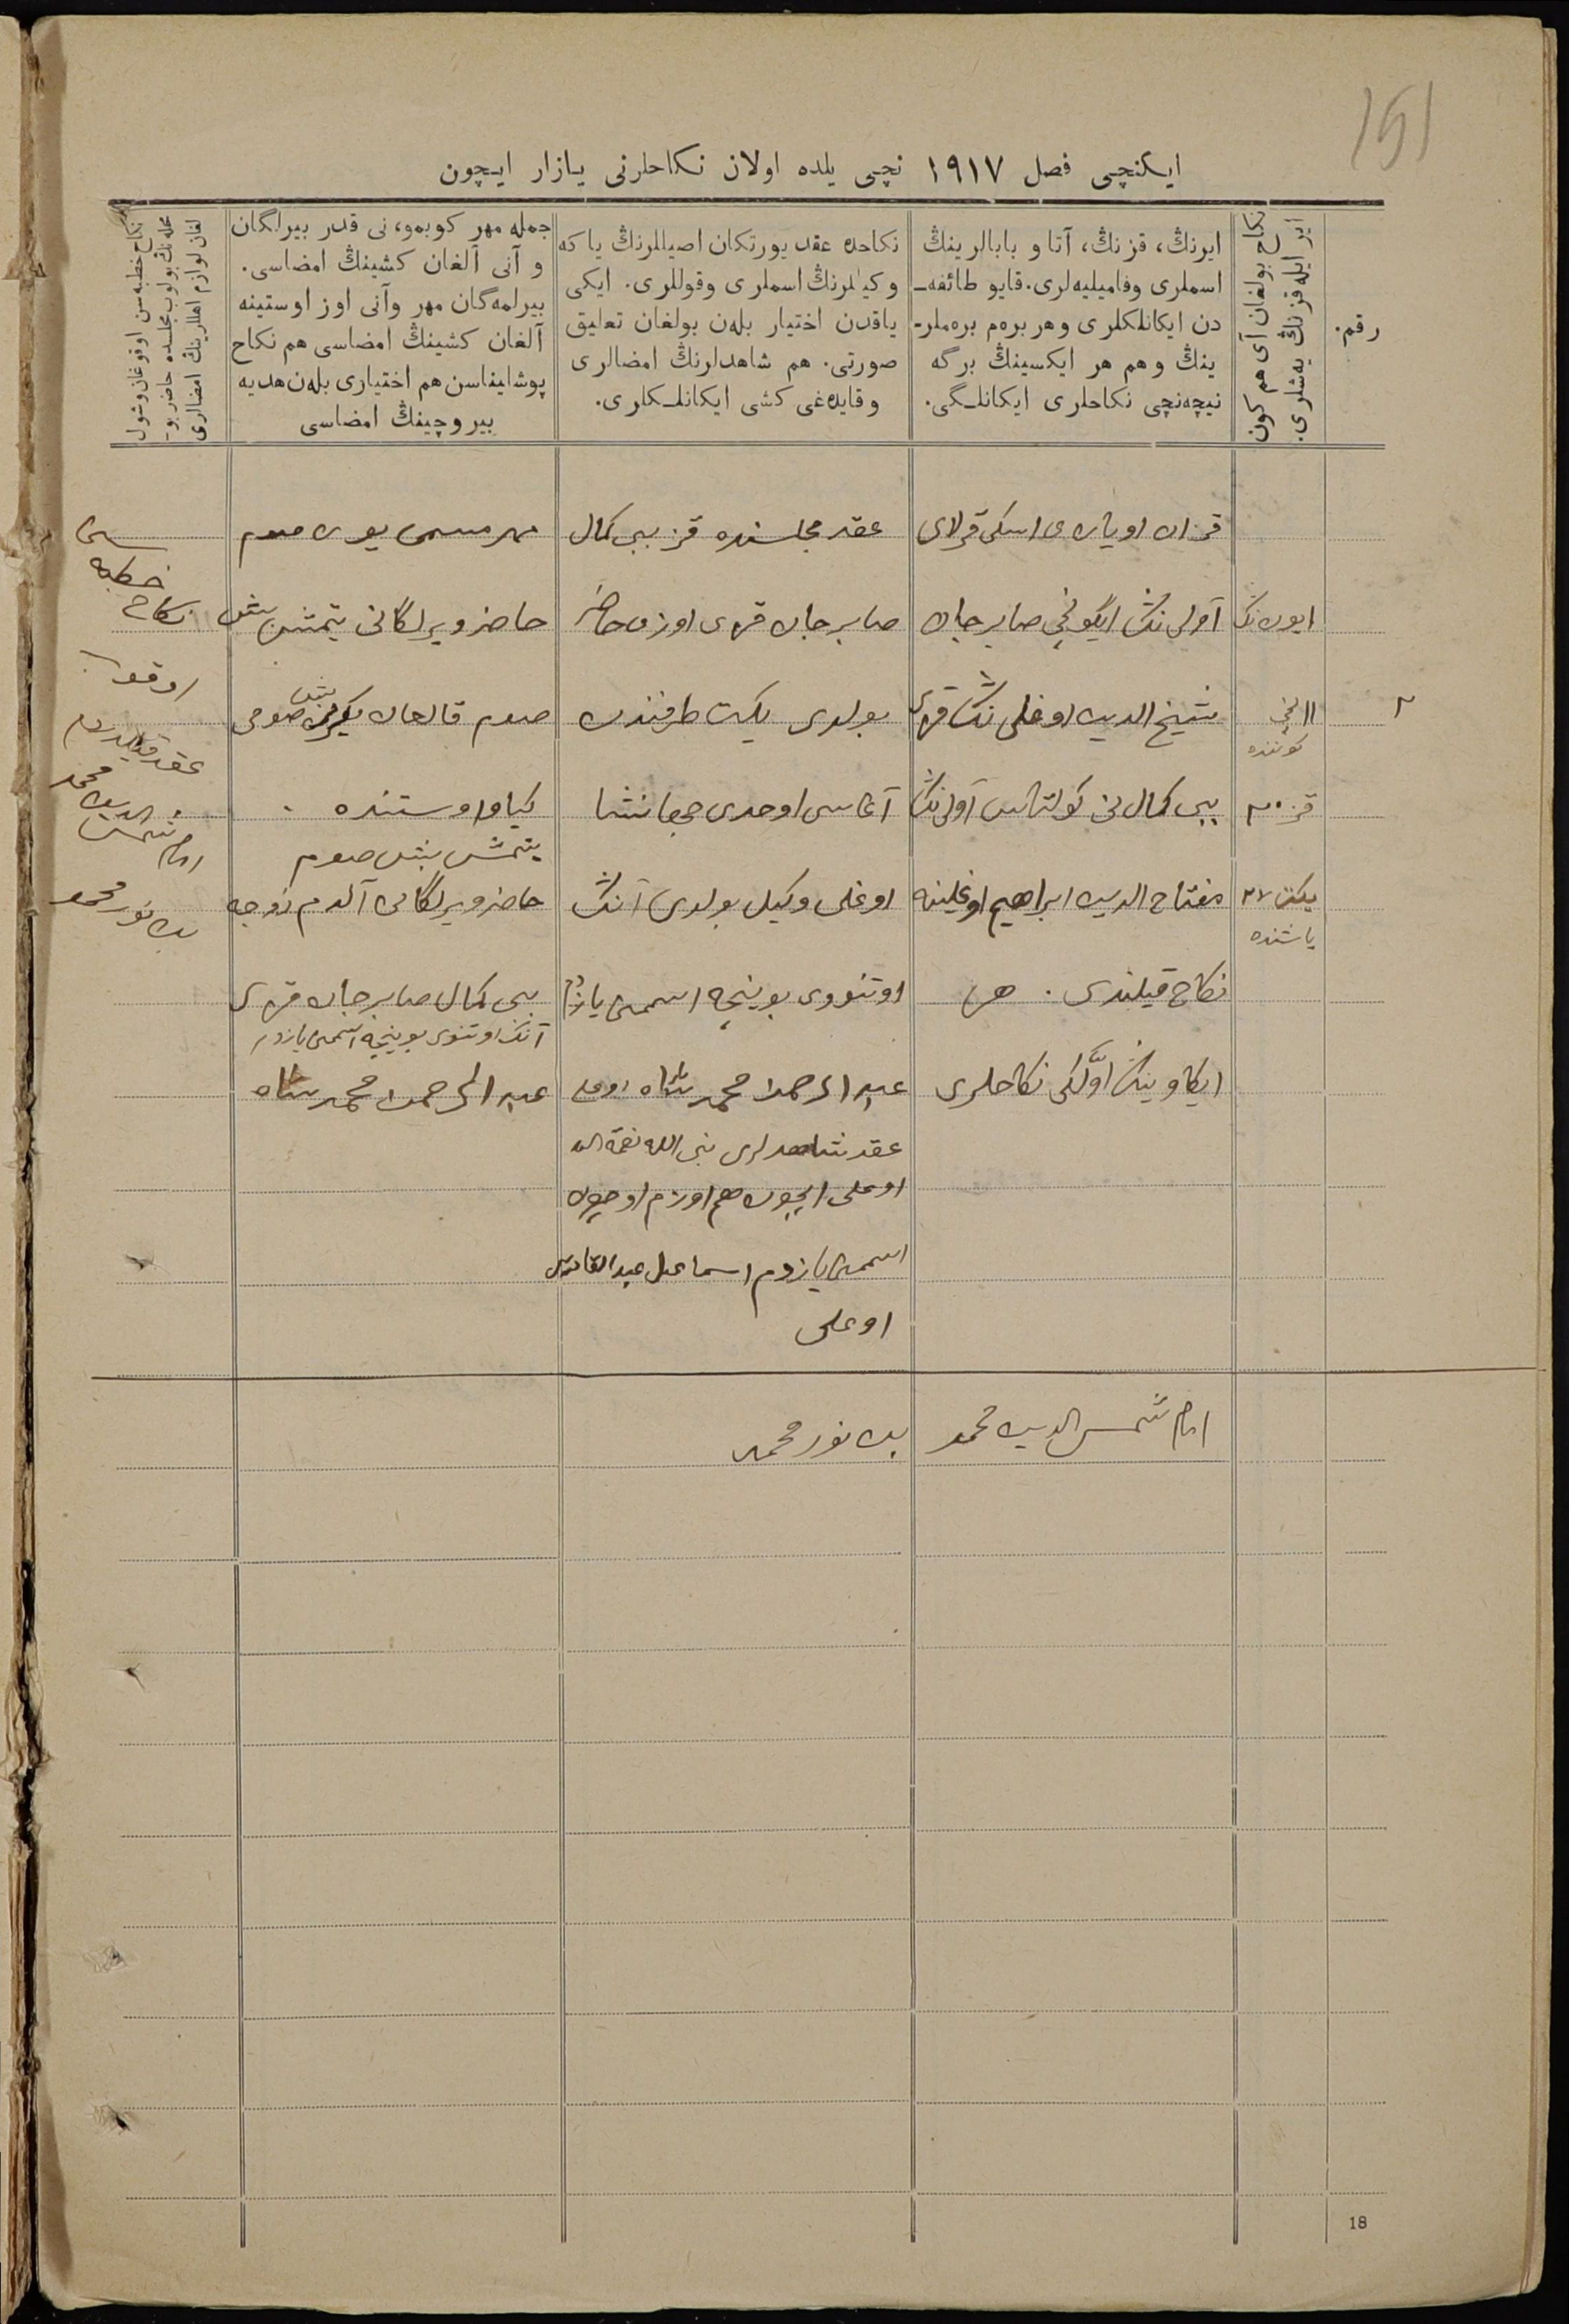 151
ایـکنچـی فصل ۱۹۱۷ نچـی یلده اولان نـکاحلرنی یـازار ایـچون
رقم.
نکاح بولغان آی هم کون
ایر ایله قزنڭ یه‌شلری.
ایرنڭ، قزنڭ، آتا و بابالرینڭ
اسملری وفامیلیه‌لری. قایو طائفه‌ـ
دن ایکانلکلری وهر بره‌م بره‌ملرـ
ینڭ و هم هر ایکسینڭ برگه
نیچه‌نچی نکاحلری ایکانلـگی.
نکاحده عقد یورتکان اصیاللرنڭ یا که
وکیللرنڭ اسملری وقوللری. ایکی
یاقدن اختیار بله‌ن بولغان تعلیق
صورتی. هم شاهدلرنڭ امضالری
وقایده‌غی کشی ایکانلـکلری.
جمله مهر کوبمو، نی قدر بیرلگان
و آنی آلغان کشینڭ امضاسی.
بیرلمه‌گان مهر وآنی اوز اوستینه
آلغان کشینڭ امضاسی هم نکاح
پوشلیناسن هم اختیاری بله‌ن هدیه
بیروچینڭ امضاسی
نکاح خطبه‌سن اوقوغان وشول
محله‌نڭ بولوب مجلسده حاضر بوـ
لغان لوازم اهللرینڭ امضالری
۲
ایون نڭ
۱۱ نچی
کوننده
قز ۲۰
یکت ۲۷
یاشنده
قزان اویازی اسکی قرلای
آولی نڭ ایگونچی صابرجان
شیخ الدین اوغلی نڭ قزی
بی کمال نی کولتاس آولی نڭ
مفتاح الدین ابراهیم اوغلینه
نکاح قیلندی. هر
ایکاوینڭ اوّلگی نکاحلری
عقد مجلسنده قز بی کمال
صابرجان قزی اوزی حاضر
بولدی یکت طرفندن
آغاسی اوحدی جهانشا
اوغلی وکیل بولدی آنڭ
اوتنووی بوینچه اسمی یازدم
عبد الرحمن محمد شاه اوغلی
عقد شاهدلری نبی الله نعمة الله
اوغلی ایچون هم اوزم اوچون
اسمی یازدم اسماعیل عبد القادر
اوغلی
مهر مسمی یوز صوم
حاضر ویرلگانی یتمش بش
صوم قالغان یکرمی بش صومی
کیاو اوستنده .
یتمش بش صوم
حاضر ویرلگانی آلدم زوجه
بی کمال صابرجان قزی
آنڭ اوتنوی بوینچه اسمی یازدم
عبد الرحمن محمد شاه
خطبه
نکاح
اوقوب
عقد قیلدم
امام شمس الدین محمد
بن نور محمد
امام شمس الدین محمد بن نور محمد
18